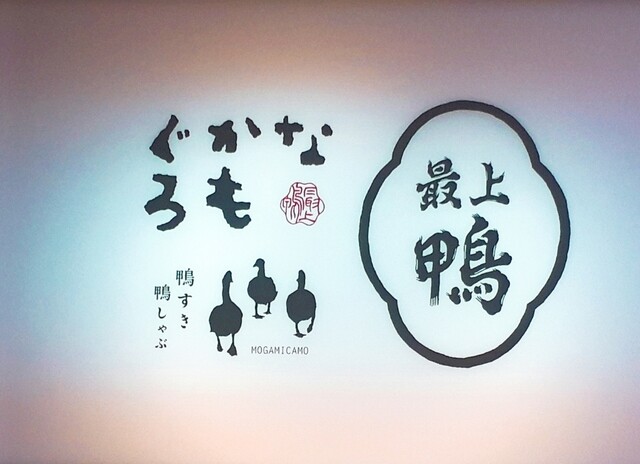 最上
鴨
な
かも
ぐろ
最上鴨
鴨すき
鴨しゃぶ
MOGAMICAMO